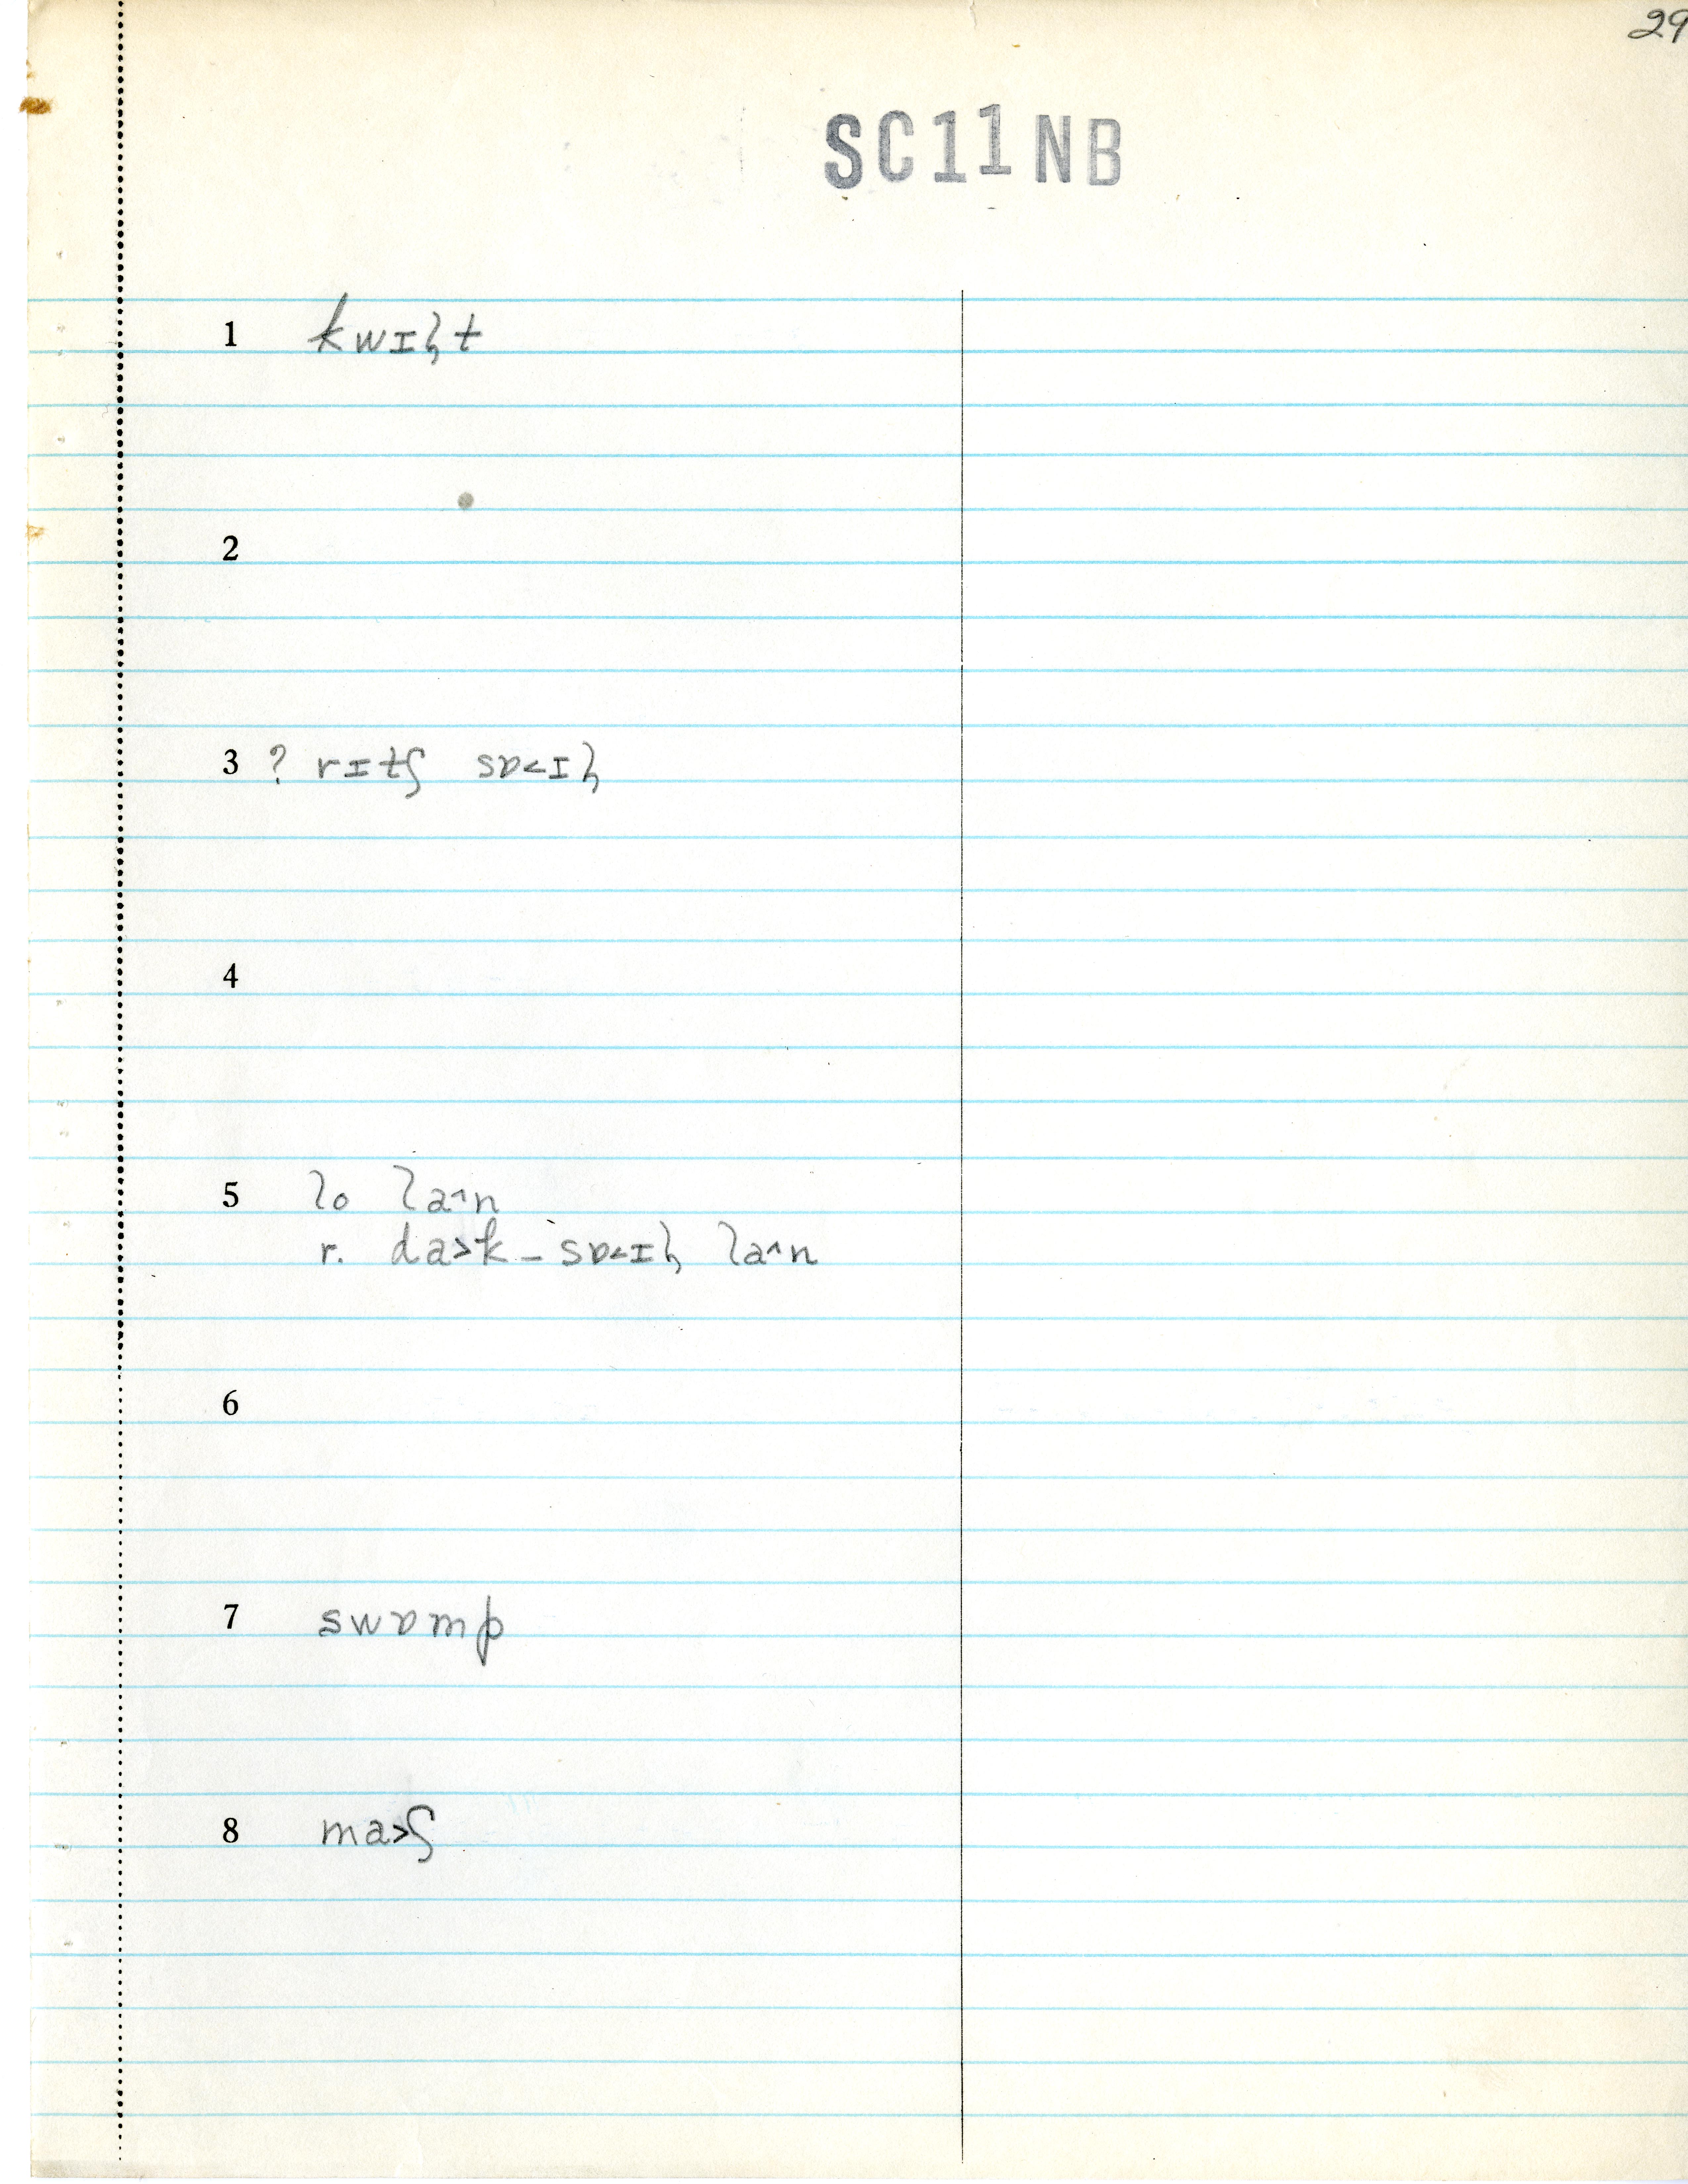 29
SC11NB
1 kwɪꞎt
2
3 ? rɪtʃ sɒ˂ɪɫ
4
5 lo la˄n
r. da˃k – sɒ˂ɪɫ la˄n
6
7 swɒmp
8 ma˃ʃ